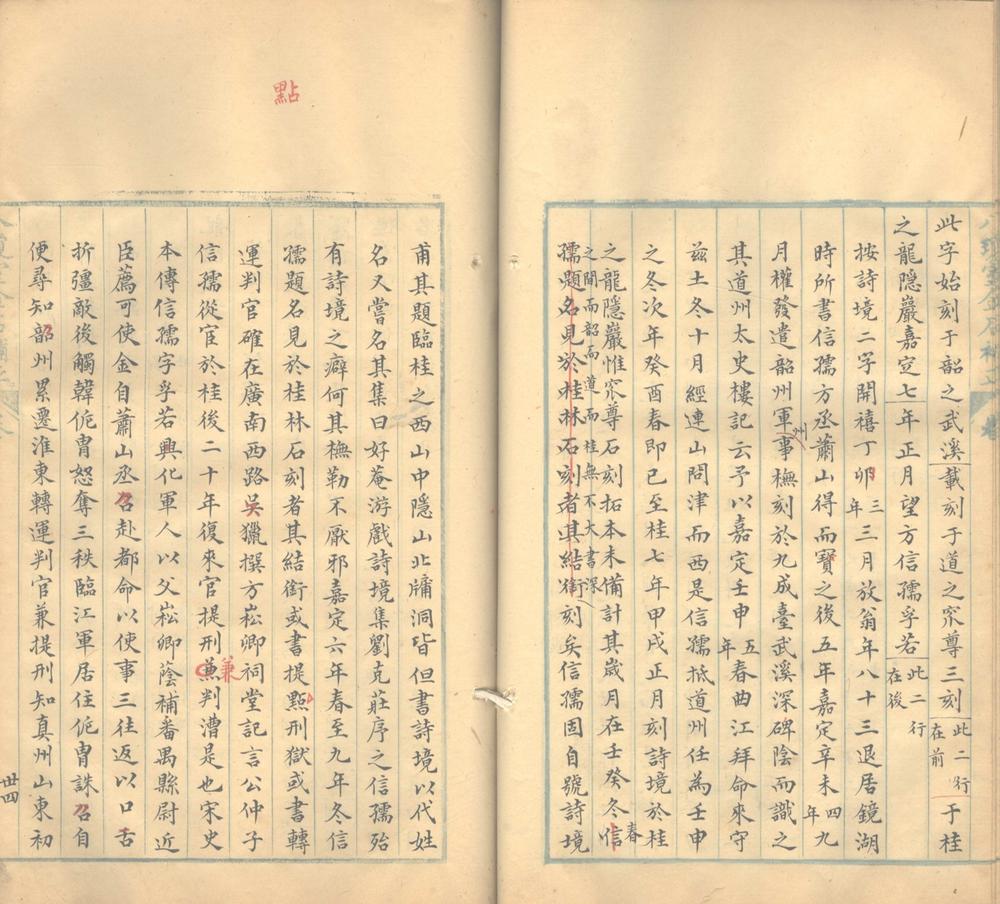 此字始刻于韶之武溪載刻于道之窊尊三刻此二行在前于桂
之龍隱巖嘉定七年正月望方信孺孚若此二行在後
按詩境二字開禧丁卯三年三月放翁年八十三退居鏡湖
時所書信孺方丞蕭山得而寶之後五年嘉定辛未四年九
月權發遣韶州軍州事橅刻於九成臺武溪深碑陰而識之
其道州太史樓記云予以嘉定壬申五年春曲江拜命來守
茲土冬十月經連山問津而西是信孺抵道州任為壬申
之冬次年癸酉春即已至桂七年甲戌正月刻詩境於桂
之龍隱巖惟窊尊石刻拓本未備計其歲月在壬癸冬春
之間而韶而道而桂無不大書深
孺題名見於桂林石刻者其結銜刻矣信孺固自號詩境
點
甫其題臨桂之西山中隱山北牖洞皆但書詩境以代姓
名又嘗名其集曰好菴游戲詩境集劉克莊序之信孺殆
有詩境之癖何其橅勒不厭邪嘉定六年春至九年冬信
孺題名見於桂林石刻者其結銜或書提點刑獄或書轉
運判官確在廣南西路吳獵撰方崧卿祠堂記言公仲子
信孺從宦於桂後二十年復來官提刑兼判漕是也宋史
本傳信孺字孚若興化軍人以父崧卿蔭補番禺縣尉近
臣薦可使金自蕭山丞召赴都命以使事三往返以口舌
折彊敵後觸韓侂冑怒奪三秩臨江軍居住侂冑誅召自
便尋知韶州累遷淮東轉運判官兼提刑知真州山東初
卅四